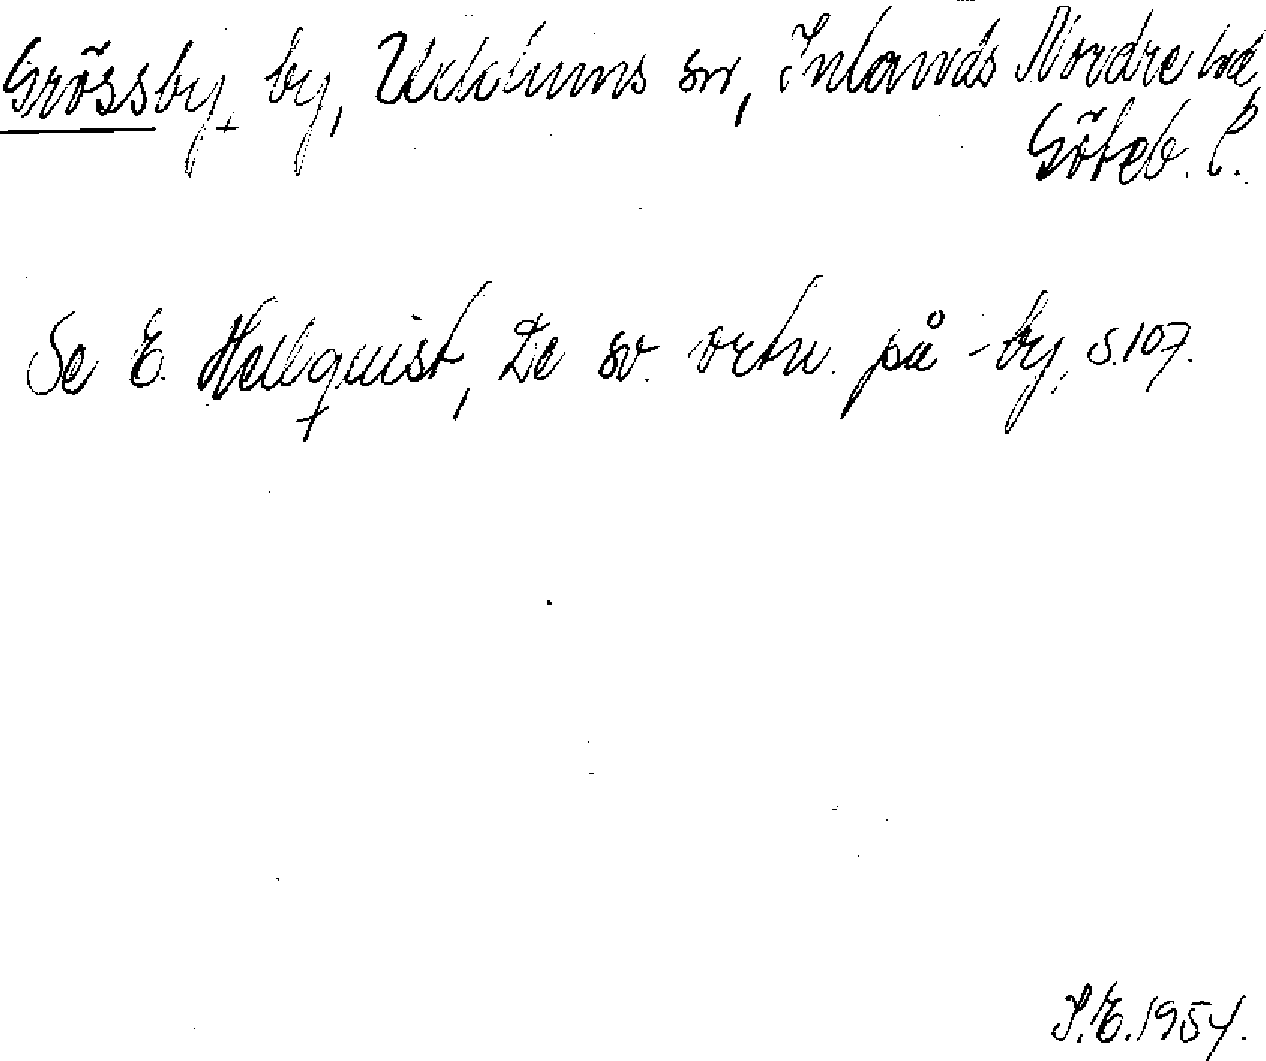 Grössby, by, Ucklums sn, Inlands Nordre hd,
Göteb. l.
Se E. Hellquist, De sv. ortn. på -by, s.107.
S.E.1954.